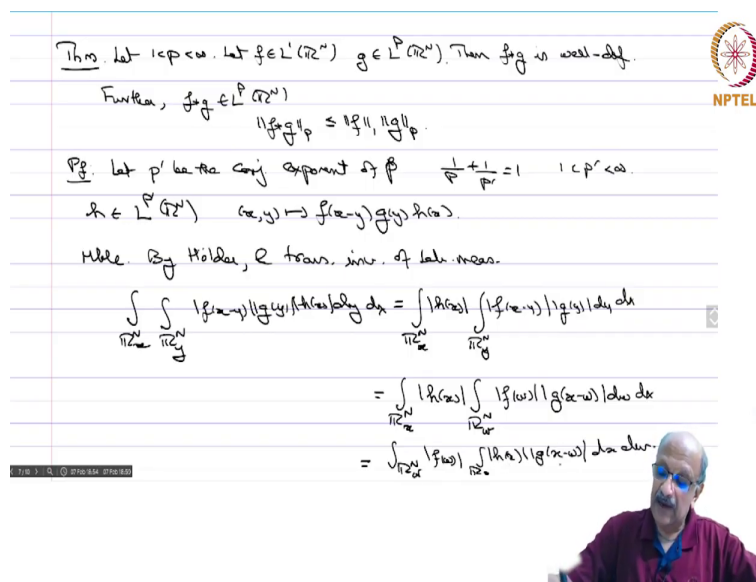 Thm. Let 1<p<∞. Let f∈L¹(ℝᴺ) g∈Lᵖ(ℝᴺ). Then f*g is well-def.
NPTEL
Further, f*g ∈ Lᵖ(ℝᴺ)
‖f*g‖ₚ ≤ ‖f‖₁ ‖g‖ₚ.
Pf. Let p' be the conj exponent of p 1/p + 1/p' = 1 1<p'<∞.
h∈ L^p'(ℝᴺ) (x,y) ↦ f(x-y)g(y)h(x).
Mble. By Hölder, & trans. inv. of Leb. meas.
∫_{ℝᴺ_x} ∫_{ℝᴺ_y} |f(x-y)||g(y)||h(x)|dy dx = ∫_{ℝᴺ_x} |h(x)| ∫_{ℝᴺ_y} |f(x-y)||g(y)| dy dx
= ∫_{ℝᴺ_x} |h(x)| ∫_{ℝᴺ_w} |f(w)||g(x-w)|dw dx
= ∫_{ℝᴺ_w} |f(w)| ∫ |h(x)||g(x-w)| dx dw.
7/10 07 Feb 16:54 07 Feb 16:55